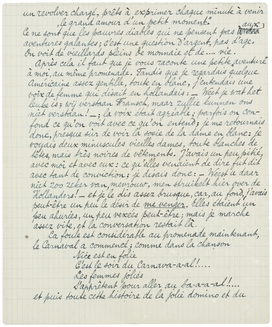 un revolver chargé, prêts à exprimer chaque minute à venir
le grand amour d'un petit moment.
Ce ne sont que les pauvres diables qui ne pensent pas aux
aventures galantes; c'est une question d'argent, pas d'âge.
On voit de vieillards péline le monde et de — voie.
Après cela il faut que je vous raconte une petite aventure
à moi, au même promenade. Tandis que je regardais quelque
Américaine assez gentille, toute en blanc, j'entendais une
voix de femme qui disait en hollandais: — Weet je wat het
leuke is; wij verstaan Fransch, maar zullie kunnen ons
niet verstaan! —; la voix était agréable, parfois on con-
fond ce qu'on voit avec ce qu'on entend; je me retournais
donc, presque sûr de voir la sosie de la dame en blanc; je
voyais deux minuscules vieilles dames, toute blanches de
têtes mais très noires de vêtements. J'avais un peu pitié,
avec moi et avec eux: ce qu'elles venaient de dire fut dit
avec tant de conviction; je disais donc: — Weest u daar
niet zoo zeker van, mevrouw, men struikelt hier over de
Hollanders! — et je le dis assez brusque, car, au fond, j'avais
peut-être un peu le désir de me venger. Elles étaient un
peu ahuries, un peu vexées peut-être; mais je marche
assez vite, et la conversation restait là.
La foule est considérable au promenade maintenant,
le Carnaval a commencé; comme dans la chanson
Nice est en folie
C'est le soir du Carnava-a-al!....
Les femmes jolies
S'apprêtent pour aller au ba-a-a-al!...
et puis toute cette histoire de la jolie domino et du